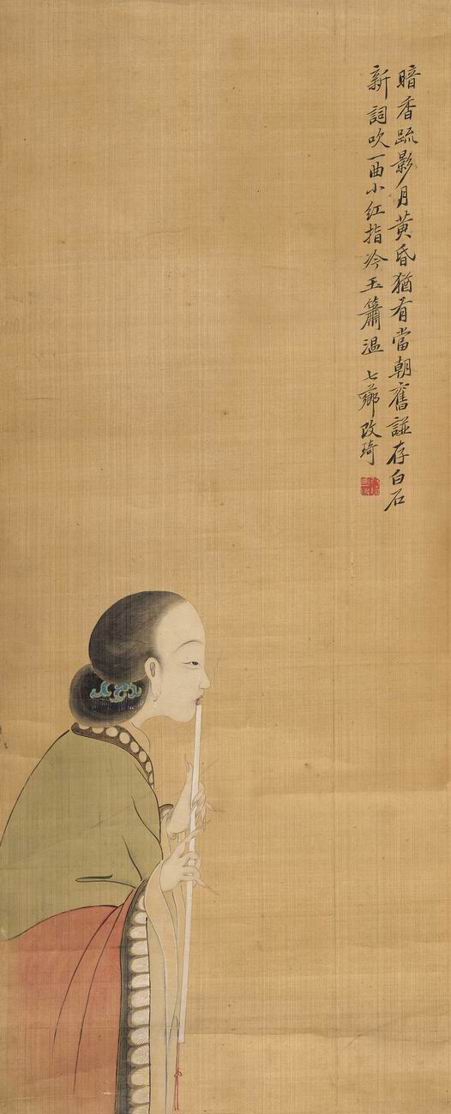 暗香疏影月黃昏猶有當朝舊譜存白石
新詞吹一曲小紅指冷玉簫温 七薌改琦